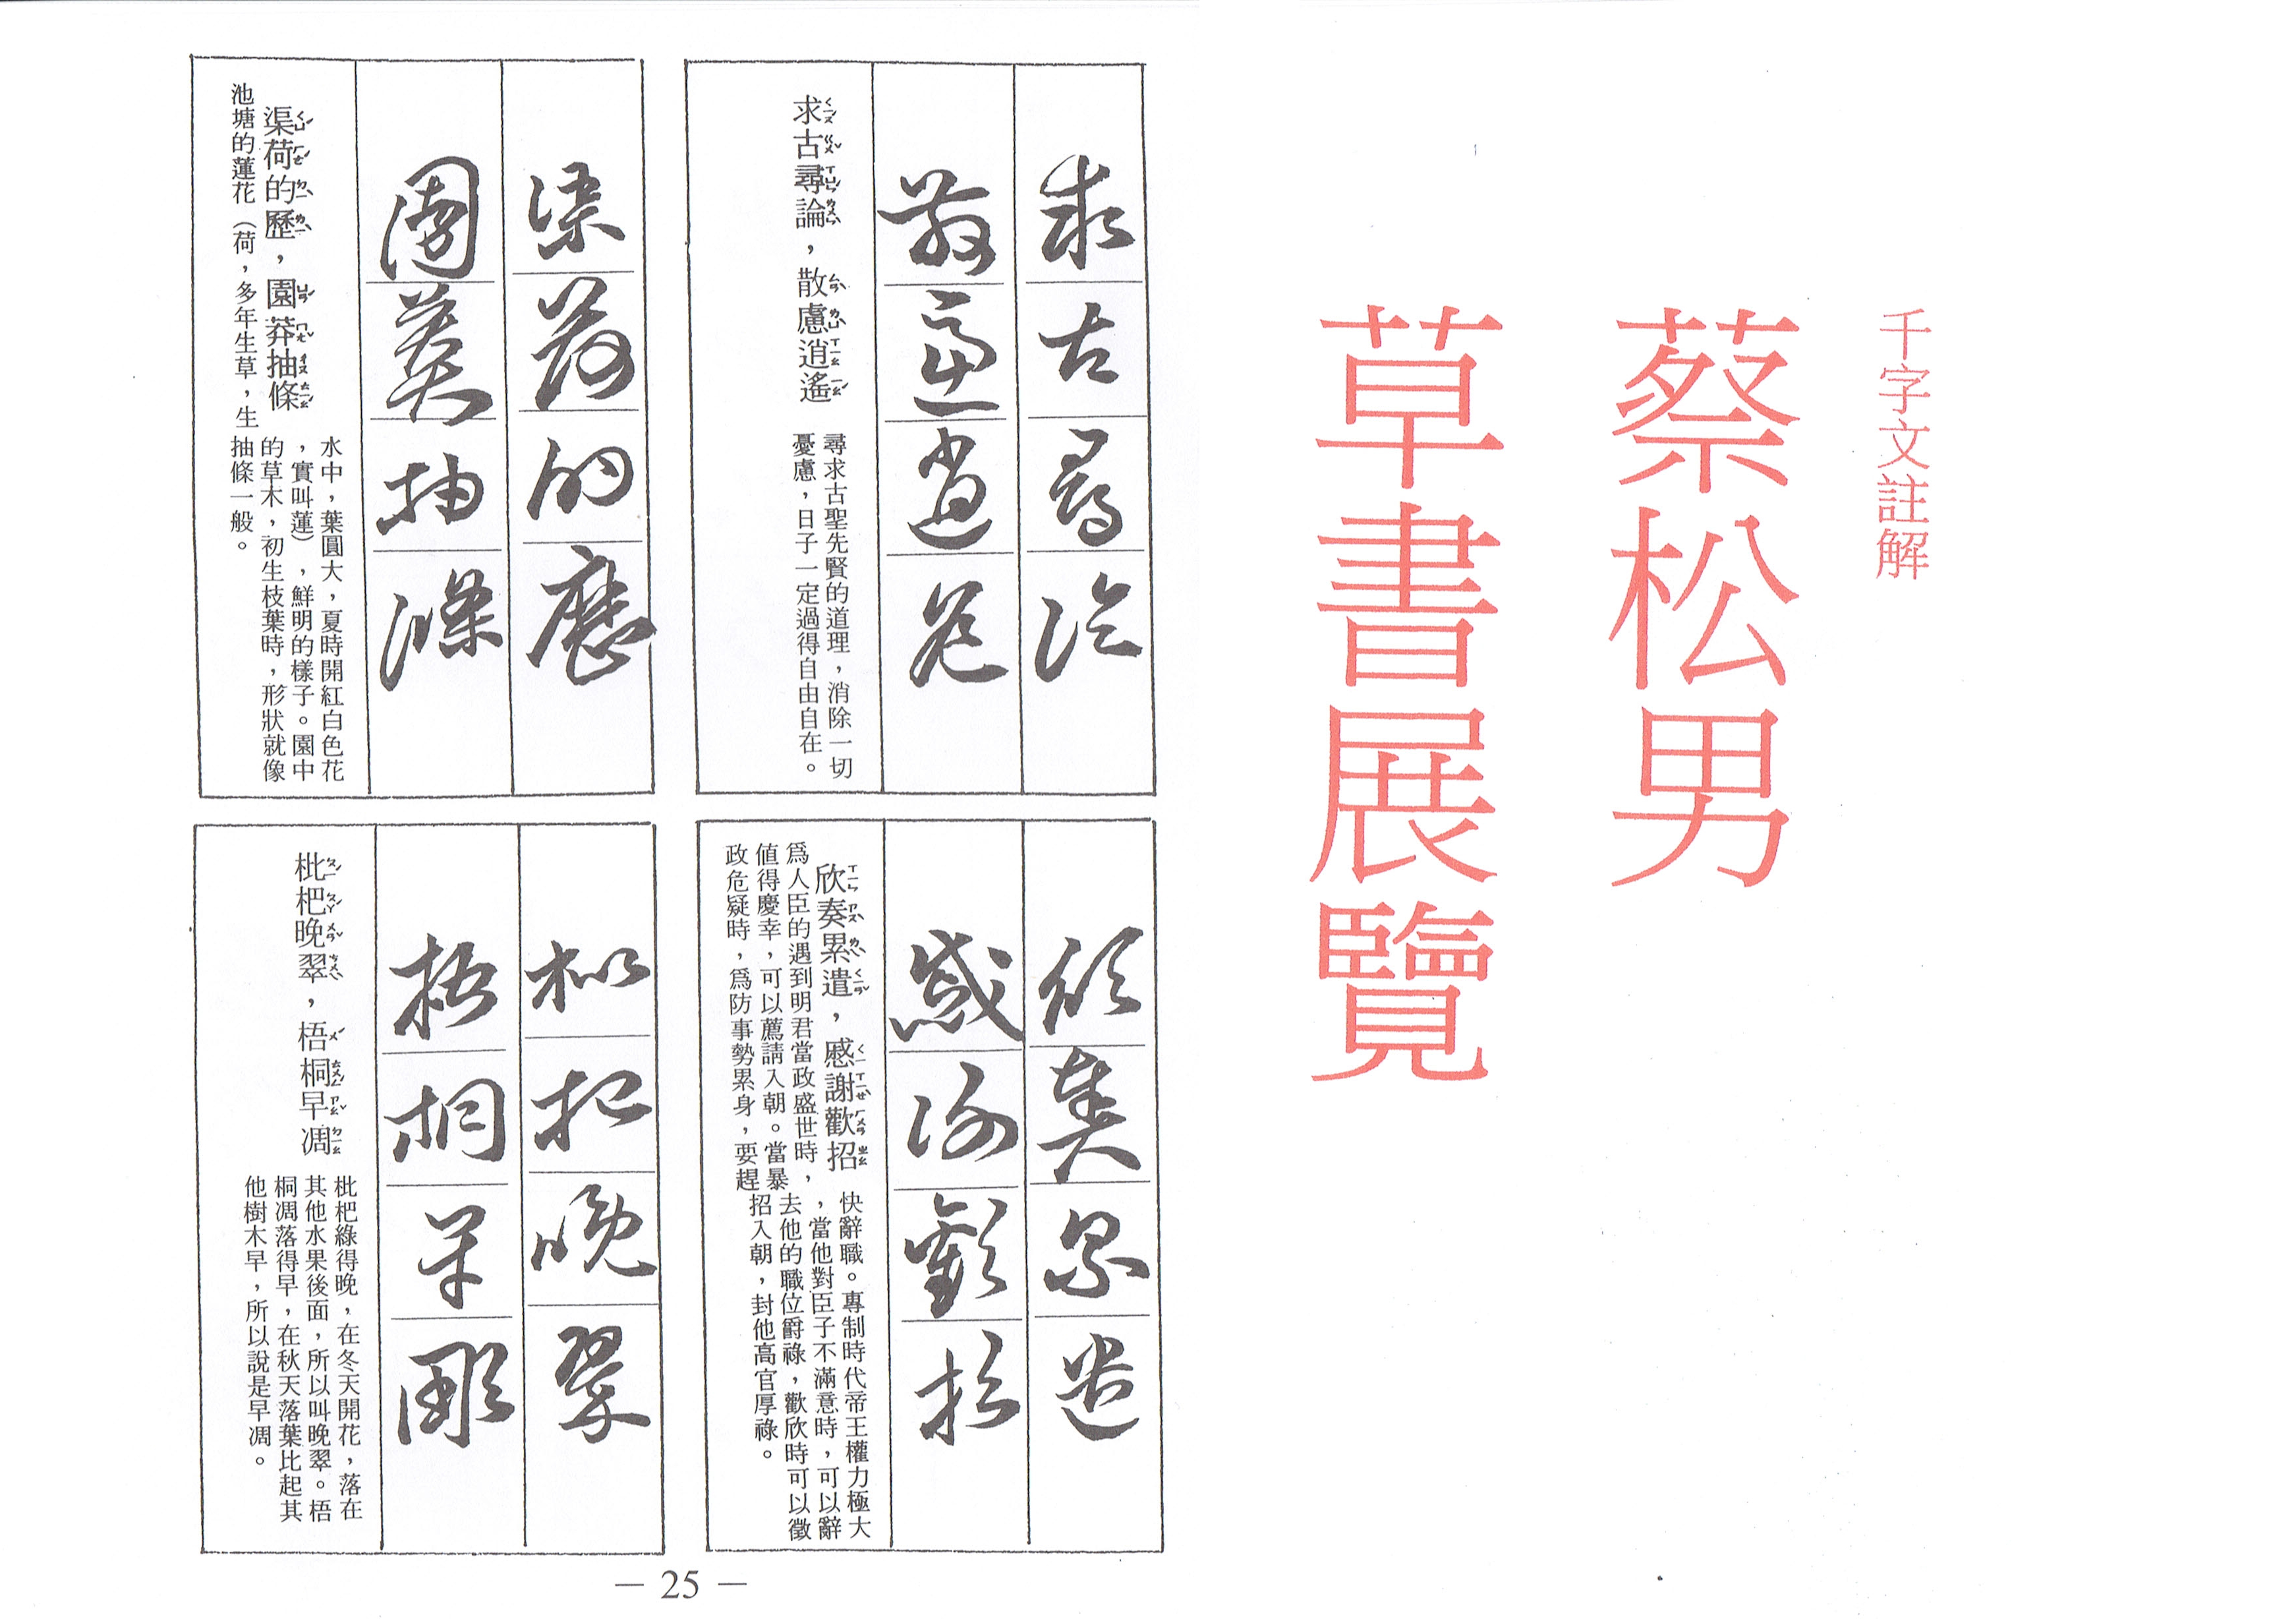 千字文註解
蔡松男
草書展覽
求古尋論
散慮逍遙
求古尋論，散慮逍遙
尋求古聖先賢的道理，消除一切
憂慮，日子一定過得自由自在。
欣奏累遣
慼謝歡招
欣奏累遣，慼謝歡招
爲人臣的遇到明君當政盛世時，
值得慶幸，可以薦請入朝。當暴
政危疑時，爲防事勢累身，要趕
快辭職。專制時代帝王權力極大
，當他對臣子不滿意時，可以辭
去他的職位爵祿，歡欣時可以徵
招入朝，封他高官厚祿。
渠荷的歷
園莽抽條
渠荷的歷，園莽抽條
池塘的蓮花（荷，多年生草，生
水中，葉圓大，夏時開紅白色花
，實叫蓮），鮮明的樣子。園中
的草木，初生枝葉時，形狀就像
抽條一般。
枇杷晚翠
梧桐早凋
枇杷晚翠，梧桐早凋
枇杷綠得晚，在冬天開花，落在
其他水果後面，所以叫晚翠。梧
桐凋落得早，在秋天落葉比起其
他樹木早，所以說是早凋。
— 25 —